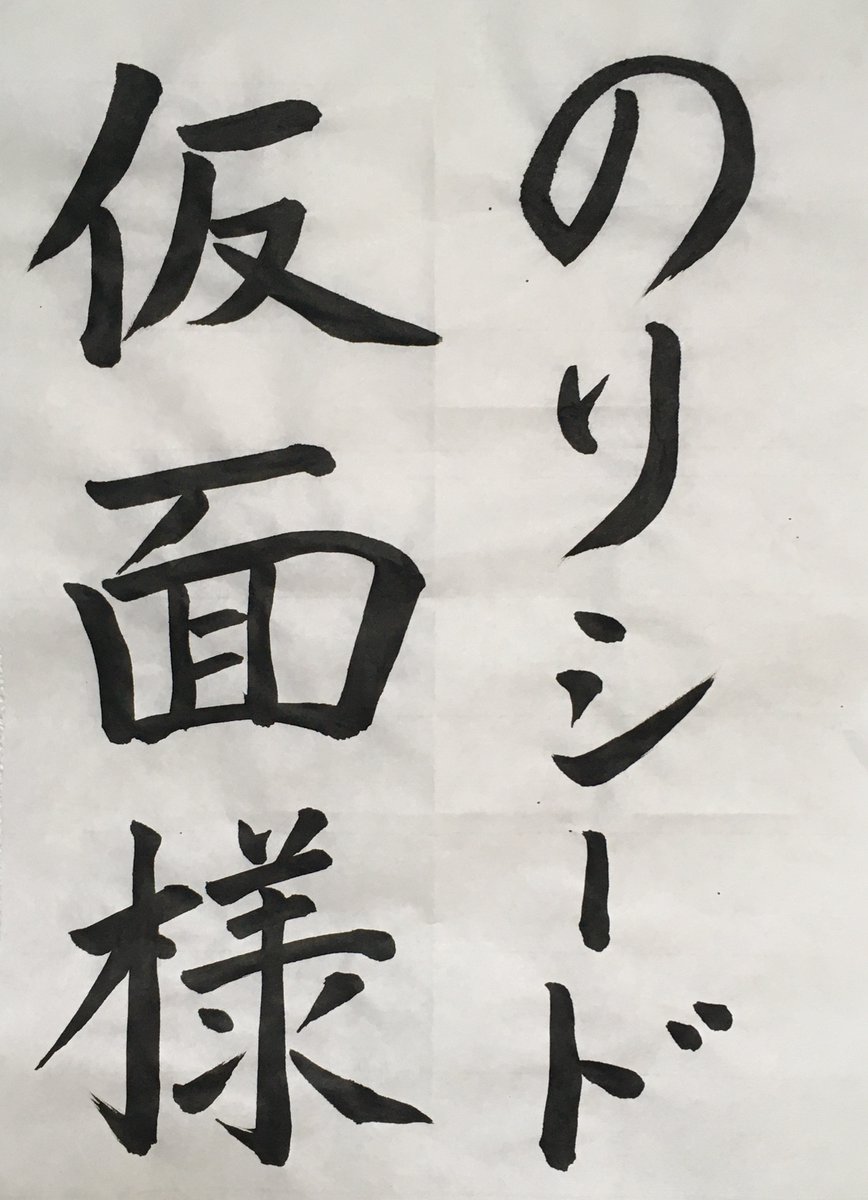 のりシード
仮面様